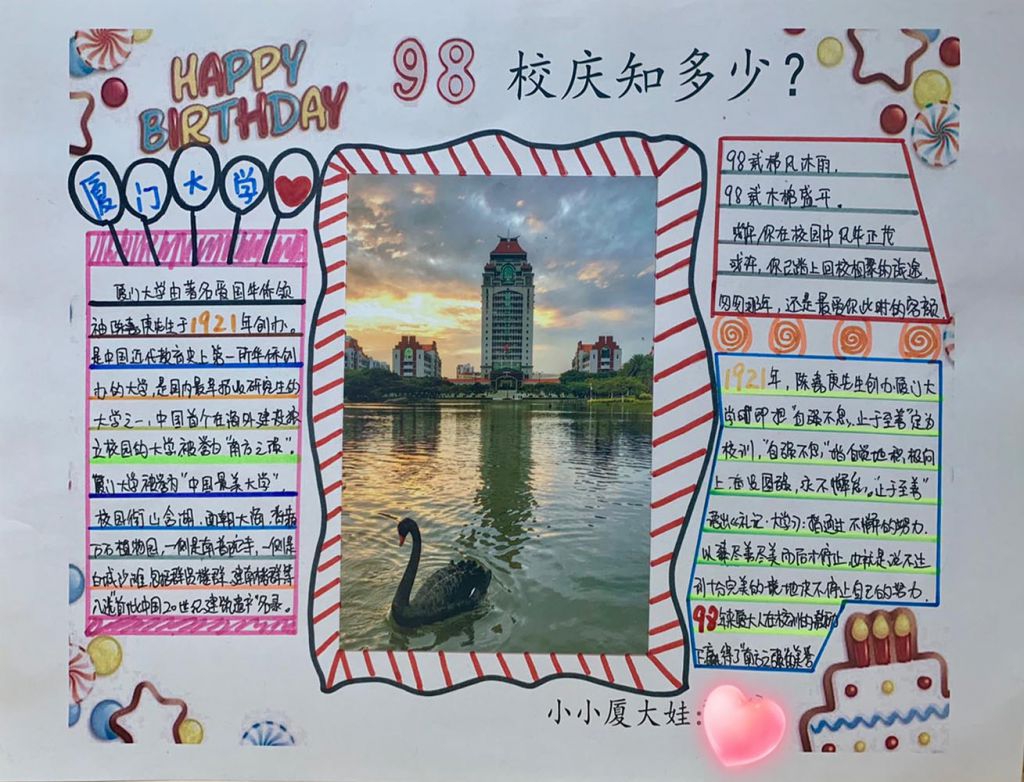 HAPPY
BIRTHDAY
98 校庆知多少？
厦门大学
厦门大学由著名爱国华侨领
袖陈嘉庚先生于1921年创办。
是中国近代教育史上第一所华侨创
办的大学，是国内最早招收研究生的
大学之一，中国首个在海外建设独
立校园的大学，被誉为"南方之强"。
厦门大学被誉为"中国最美大学"，
校园依山含湖，面朝大海，背靠
万石植物园，一侧是南普陀寺，一侧是
白城沙滩，建南楼群等
入选"首批中国20世纪建筑遗产"名录。
98载栉风沐雨，
98载木棉盛开。
或许，你在校园中风华正茂
或许，你已踏上回校相聚的旅途，
匆匆那年，还是最爱你此时的容颜
1921年，陈嘉庚先生创办厦门大
学时即把"自强不息，止于至善"定为
校训，"自强不息"指自觉地积极向
上、奋发图强、永不懈怠。"止于至善"
语出《礼记·大学》：指通过不懈的努力，
以臻尽善尽美而后才停止，也就是说不达
到十分完美的境地决不停止自己的努力。
98年来厦大人在校训的激励
下，赢得了"南方之强"的美誉
小小厦大娃：